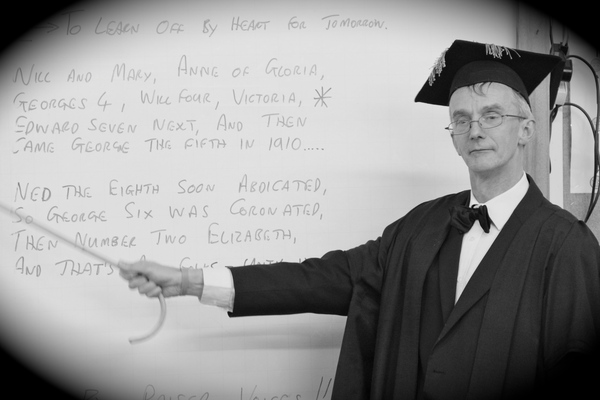 → To Learn Off By Heart for Tomorrow.
Will and Mary, Anne of Gloria,
Georges 4, Will Four, Victoria, *
Edward Seven Next, And Then
Came George the Fifth in 1910.....
Ned the Eighth Soon Abdicated,
So George Six was Coronated,
Then Number Two Elizabeth,
And That's
Raised Voices!!